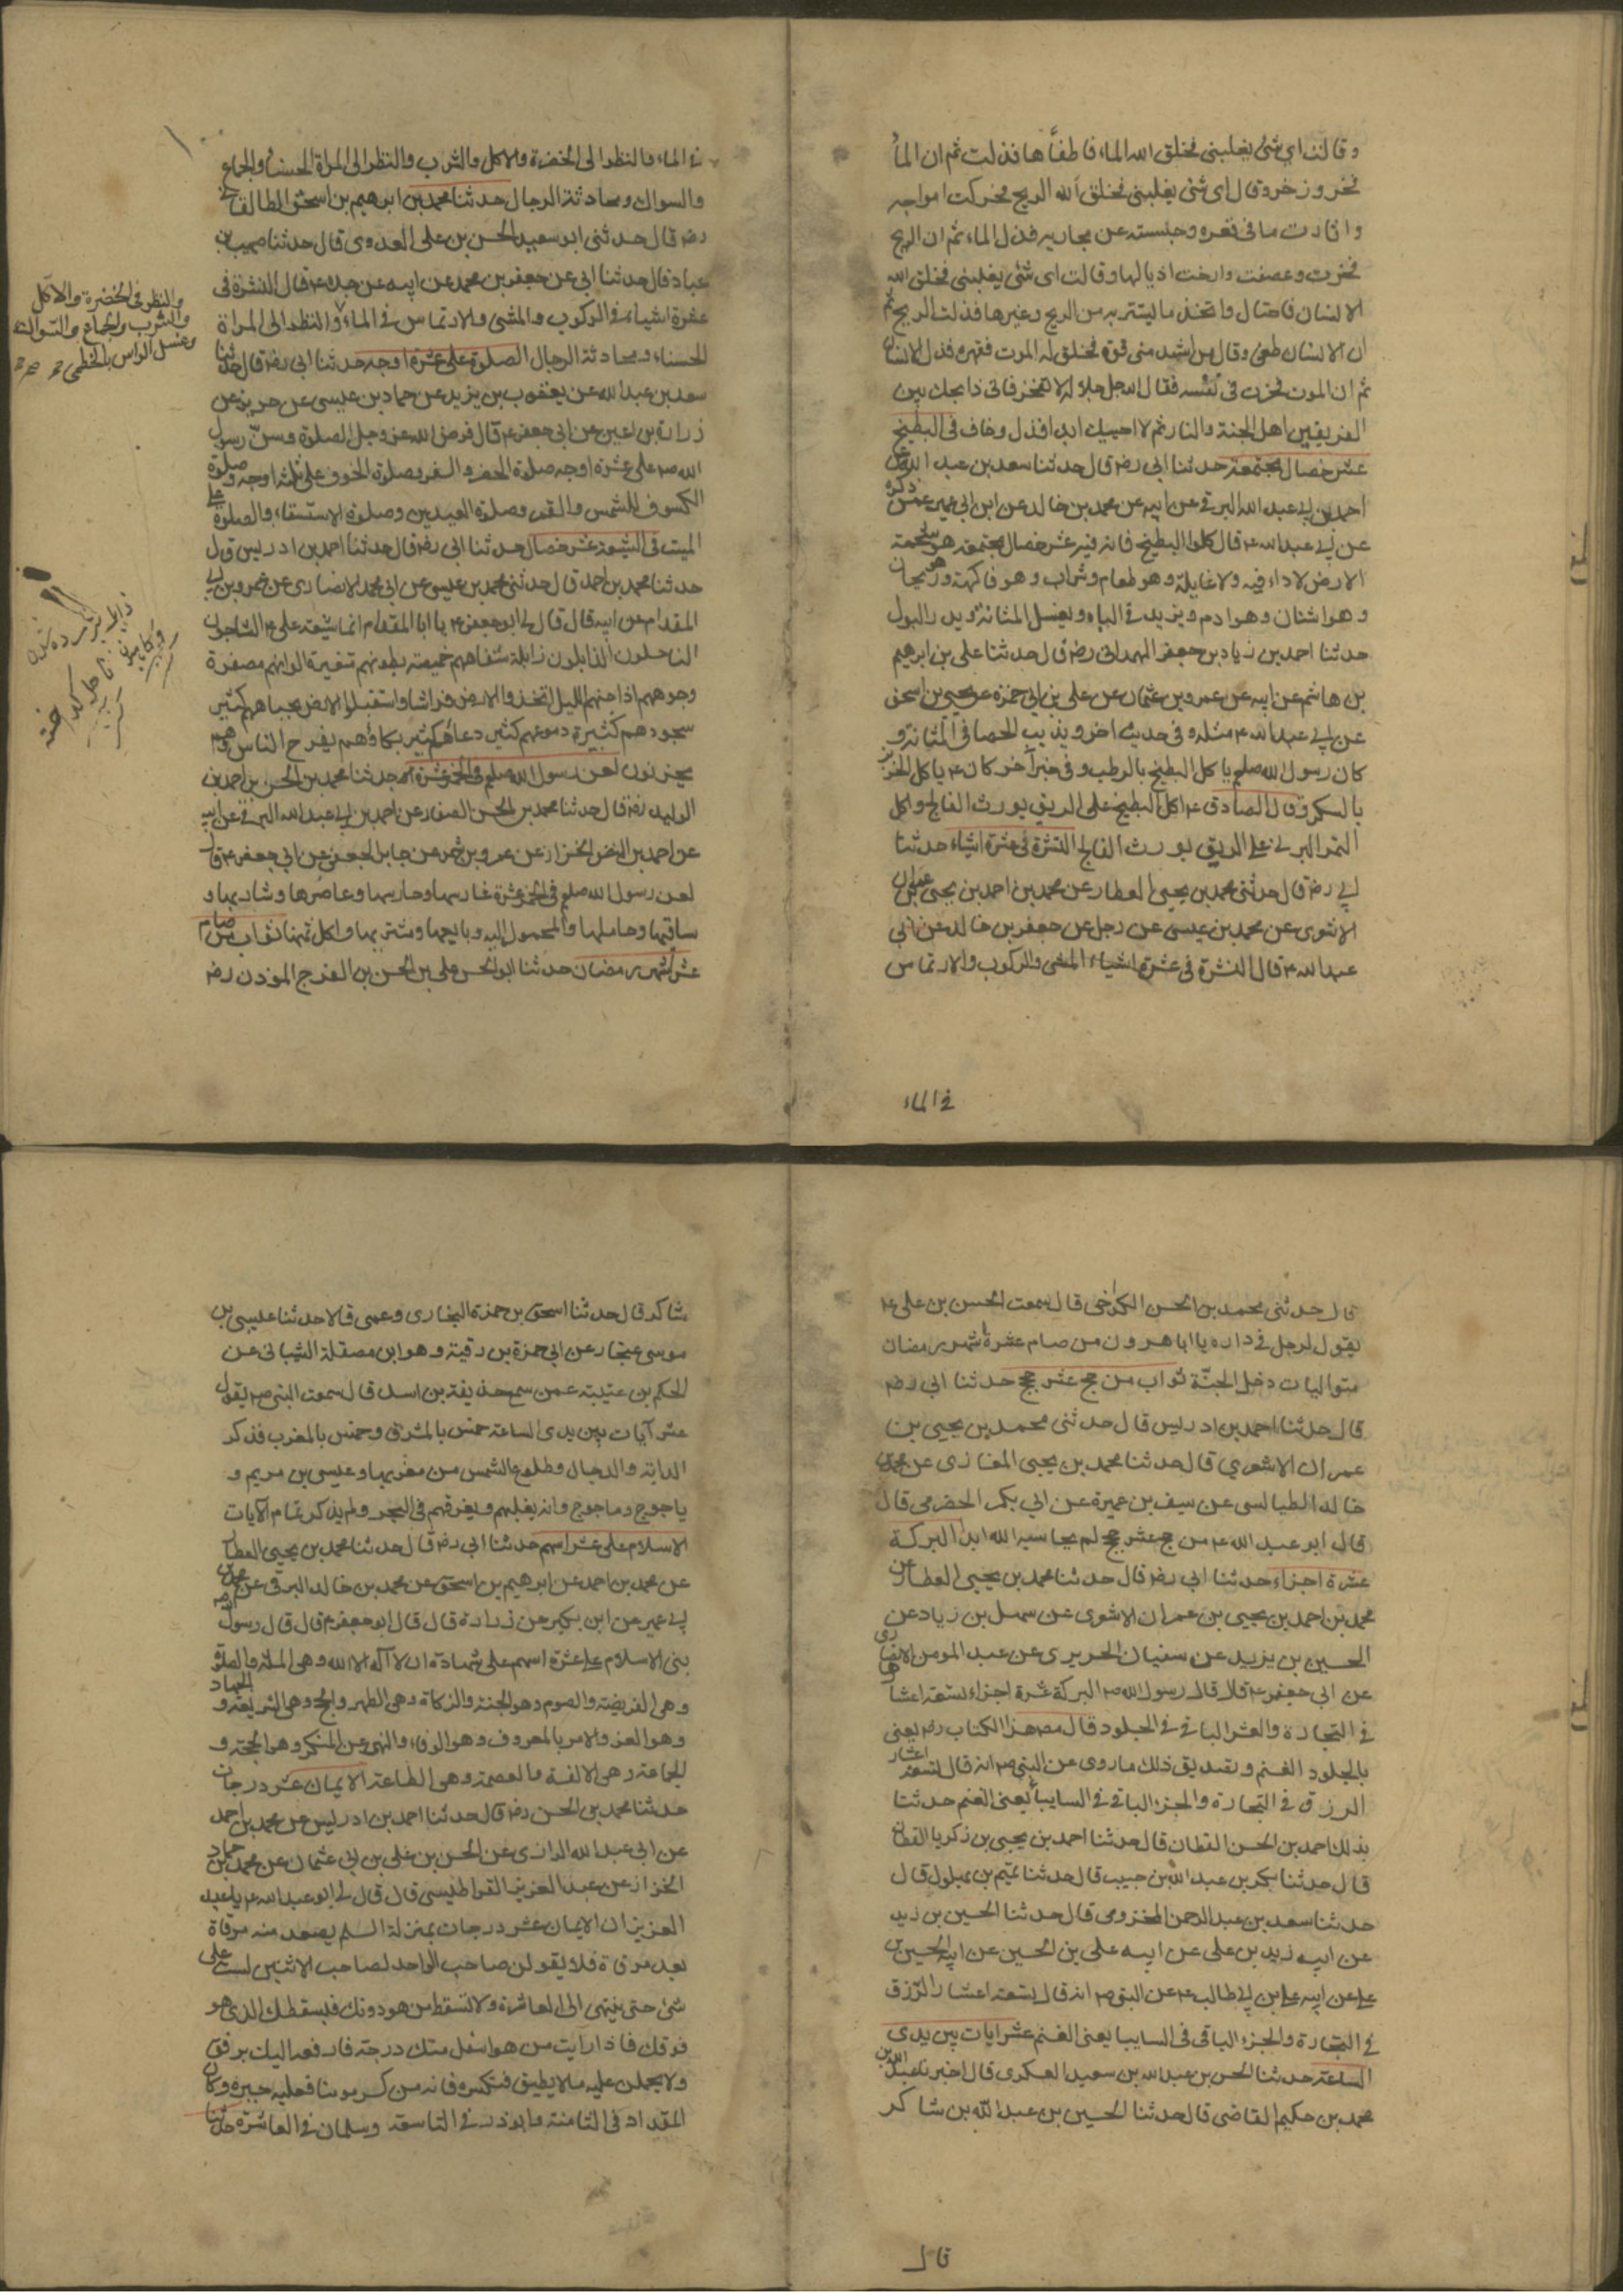 وقالت اي شئ يغلبني فخلق الله الماء فاطفأها فذلت ثم ان الماء
فخر وزخر وقال اي شئ يغلبني فخلق الله الريح فحركت امواجه
واثارت ما في قعره وحبسته عن مجاريه فذل الماء ثم ان الريح
فخرت وعصفت وارخت اذيالها وقالت اي شئ يغلبني فخلق الله
الانسان فاحتال واتخذ ما يستتر به من الريح وغيرها فذلت الريح ثم
ان الانسان طغى وقال من اشد مني قوة فخلق له الموت فقهره فذل الانسان
ثم ان الموت فخر في نفسه فقال الله جل جلاله لا تفخر فاني ذابحك بين
الفريقين اهل الجنة والنار ثم لا احييك ابدا فذل وخاف في البطيخ
عشر خصال مجتمعة حدثنا ابي رضه قال حدثنا سعد بن عبد الله عن
احمد بن ابي عبد الله البرقي عن ابيه عن محمد بن خالد عن ابن ابي عمير عمن ذكره
عن ابي عبد الله ع قال كلوا البطيخ فان فيه عشر خصال مجتمعة هو شحمة
الارض لا داء فيه ولا غايلة وهو طعام وشراب وهو فاكهة وهو ريحان
وهو اشنان وهو ادم ويزيد في الباه ويغسل المثانة ويدر البول
حدثنا احمد بن زياد بن جعفر الهمداني رضه قال حدثنا علي بن ابرهيم
بن هاشم عن ابيه عن عمرو بن عثمان عن علي بن ابي حمزة عن يحيى بن اسحق
عن ابي عبد الله ع مثله وفي حديث اخر ويذيب الحصا في المثانة و
كان رسول الله صلعم ياكل البطيخ بالرطب وفي خبر آخر كان ع ياكل الخربز
بالسكر وقال الصادق ع اكل البطيخ على الريق يورث الفالج واكل
التمر البرني على الريق يورث الفالج النشرة في عشرة اشياء حدثنا
ابي رضه قال حدثني محمد بن يحيى العطار عن محمد بن احمد بن يحيى بن عمران
الاشعري عن محمد بن عيسى عن رجل عن جعفر بن خالد عن ابي
عبد الله ع قال النشرة في عشرة اشياء المشي والركوب والارتماس
في الماء
في الماء والنظر الى الخضرة والاكل والشرب والنظر الى المراة الحسناء والجماع
والسواك ومحادثة الرجال حدثنا محمد بن ابرهيم بن اسحق الطالقاني
رضه قال حدثني ابو سعيد الحسن بن علي العدوي قال حدثنا صهيب بن
عباد قال حدثنا ابي عن جعفر بن محمد عن ابيه عن جده ع قال النشرة في
عشرة اشياء في الركوب والمشي والارتماس في الماء والنظر الى المراة
الحسناء ومحادثة الرجال الصلوة على عشرة اوجه حدثنا ابي رضه قال حدثنا
سعد بن عبد الله عن يعقوب بن يزيد عن حماد بن عيسى عن حريز عن
زرارة بن اعين عن ابي جعفر ع قال فرض الله عز وجل الصلوة وسن رسول
الله ص على عشرة اوجه صلوة الحضر والسفر وصلوة الخوف على ثلثة اوجه وصلوة
الكسوف للشمس والقمر وصلوة العيدين وصلوة الاستسقاء والصلوة على
الميت في الشيعة عشر خصال حدثنا ابي رضه قال حدثنا احمد بن ادريس قال
حدثنا محمد بن احمد قال حدثني محمد بن عيسى عن ابي محمد الانصاري عن عمرو بن ابي
المقدام عن ابيه قال قال لي ابو جعفر ع يا ابا المقدام انما شيعة علي ع الشاحبون
الناحلون الذابلون ذابلة شفاههم خميصة بطونهم متغيرة الوانهم مصفرة
وجوههم اذا جنهم الليل اتخذوا الارض فراشا واستقبلوا الارض بجباههم كثير
سجودهم كثيرة دموعهم كثير دعاؤهم كثير بكاؤهم يفرح الناس وهم
يحزنون لعن رسول الله صلعم في الخمر عشرة حدثنا محمد بن الحسن بن احمد بن
الوليد رضه قال حدثنا محمد بن الحسن الصفار عن احمد بن ابي عبد الله البرقي عن ابيه
عن احمد بن النضر الخزاز عن عمرو بن شمر عن جابر الجعفي عن ابي جعفر ع قال
لعن رسول الله صلعم في الخمر عشرة غارسها وحارسها وعاصرها وشاربها و
ساقيها وحاملها والمحمول اليه وبايعها ومشتريها واكل ثمنها ثواب من صام
عشر اشهر رمضان حدثنا ابو الحسن علي بن الحسن بن الفرج المؤذن رضه
والنظر في الخضرة والاكل
والشرب والجماع والسواك
وغسل الراس بالخطمى
قال حدثني محمد بن الحسن الكرخي قال سمعت الحسن بن علي ع
يقول لرجل في داره يا ابا هرون من صام عشرة اشهر رمضان
متواليات دخل الجنة ثواب من حج عشر حجج حدثنا ابي رضه
قال حدثنا احمد بن ادريس قال حدثني محمد بن يحيى بن
عمران الاشعري قال حدثنا محمد بن يحيى المعاذي عن محمد بن
خالد الطيالسي عن سيف بن عميرة عن ابي بكر الحضرمي قال
قال ابو عبد الله ع من حج عشر حجج لم يحاسبه الله ابدا البركة
عشرة اجزاء حدثنا ابي رضه قال حدثنا محمد بن يحيى العطار عن
محمد بن احمد بن يحيى بن عمران الاشعري عن سهل بن زياد عن
الحسين بن يزيد عن سفيان الحريري عن عبد المومن الانصاري
عن ابي جعفر ع قال قال رسول الله ص البركة عشرة اجزاء تسعة اعشارها
في التجارة والعشر الباقي في الجلود قال مصنف هذا الكتاب رضه يعني
بالجلود الغنم وتصديق ذلك ما روي عن النبي ص انه قال تسعة اعشار
الرزق في التجارة والجزء الباقي في السابيا يعني الغنم حدثنا
بذلك احمد بن الحسن القطان قال حدثنا احمد بن يحيى بن زكريا القطان
قال حدثنا بكر بن عبد الله بن حبيب قال حدثنا تميم بن بهلول قال
حدثنا سعد بن عبد الرحمن المخزومي قال حدثنا الحسين بن زيد
عن ابيه زيد بن علي عن ابيه علي بن الحسين عن ابيه الحسين بن
علي عن ابيه علي بن ابي طالب ع عن النبي ص انه قال تسعة اعشار الرزق
في التجارة والجزء الباقي في السابيا يعني الغنم عشر ايات بين يدي
الساعة حدثنا الحسن بن عبد الله بن سعيد العسكري قال اخبرنا عبد الله بن
محمد بن حكيم القاضي قال حدثنا الحسين بن عبد الله بن شاكر
قال
شاكر قال حدثنا اسحق بن حمزة البخاري وعمي قالا حدثنا عيسى بن
موسى غنجار عن ابي حمزة بن رقية وهو ابن مصقلة الشيباني عن
الحكم بن عتيبة عمن سمع حذيفة بن اسد قال سمعت النبي ص يقول
عشر آيات بين يدي الساعة خمس بالمشرق وخمس بالمغرب فذكر
الدابة والدجال وطلوع الشمس من مغربها وعيسى بن مريم و
ياجوج وماجوج وانه يغلبهم ويغرقهم في البحر ولم يذكر تمام الآيات
الاسلام على عشر اسهم حدثنا ابي رضه قال حدثنا محمد بن يحيى العطار
عن محمد بن احمد عن ابرهيم بن اسحق عن محمد بن خالد البرقي عن محمد بن
ابي عمير عن ابن بكير عن زرارة قال قال ابو جعفر ع قال قال رسول الله ص
بني الاسلام على عشرة اسهم على شهادة ان لا اله الا الله وهي الملة والصلوة
وهي الفريضة والصوم وهو الجنة والزكاة وهي الطهر والحج وهي الشريعة والجهاد
وهو العز والامر بالمعروف وهو الوفاء والنهي عن المنكر وهو الحجة و
الجماعة وهي الالفة والعصمة وهي الطاعة الايمان عشر درجات
حدثنا محمد بن الحسن رضه قال حدثنا احمد بن ادريس عن محمد بن احمد
عن ابي عبد الله الرازي عن الحسن بن علي بن ابي عثمان عن محمد بن حماد
الخزاز عن عبد العزيز القراطيسي قال قال لي ابو عبد الله ع يا عبد
العزيز ان الايمان عشر درجات بمنزلة السلم يصعد منه مرقاة
بعد مرقاة فلا يقولن صاحب الواحد لصاحب الاثنين لست على
شئ حتى ينتهى الى العاشرة ولا تسقط من هو دونك فيسقطك الذي هو
فوقك فاذا رايت من هو اسفل منك درجة فارفعه اليك برفق
ولا تحملن عليه ما لا يطيق فتكسره فانه من كسر مومنا فعليه جبره وكان
المقداد في الثامنة وابو ذر في التاسعة وسلمان في العاشرة حدثنا